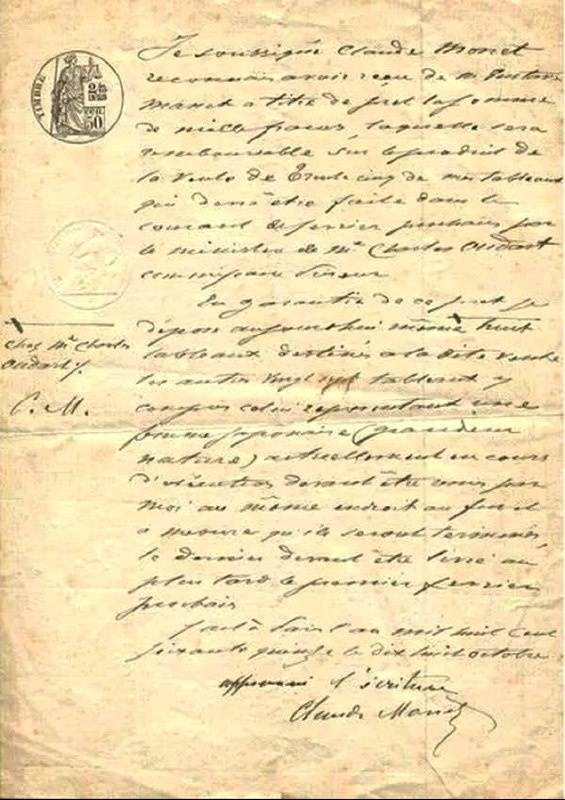 TIMBRE
50
Je soussigné Claude Monet
reconnais avoir reçu de M. Gustave
Manet à titre de prêt la somme
de mille francs, laquelle sera
remboursable sur le produit de
la vente de trente cinq de mes tableaux
qui devra être faite dans le
courant de février prochain par
le ministère de Me Charles Oudart
commissaire priseur
En garantie de ce prêt je
dépose aujourd'hui même huit
chez Me Charles
Oudart
C. M.
tableaux destinés à la dite vente
les autres vingt sept tableaux y
compris celui représentant une
femme japonaise (grandeur
nature) actuellement en cours
d'exécution devant être remis par
moi au même endroit au fur et
à mesure qu'ils seront terminés,
le dernier devant être livré au
plus tard le premier février
prochain
Fait à Paris l'an mil huit cent
soixante quinze le dix huit octobre
approuvé l'écriture
Claude Monet